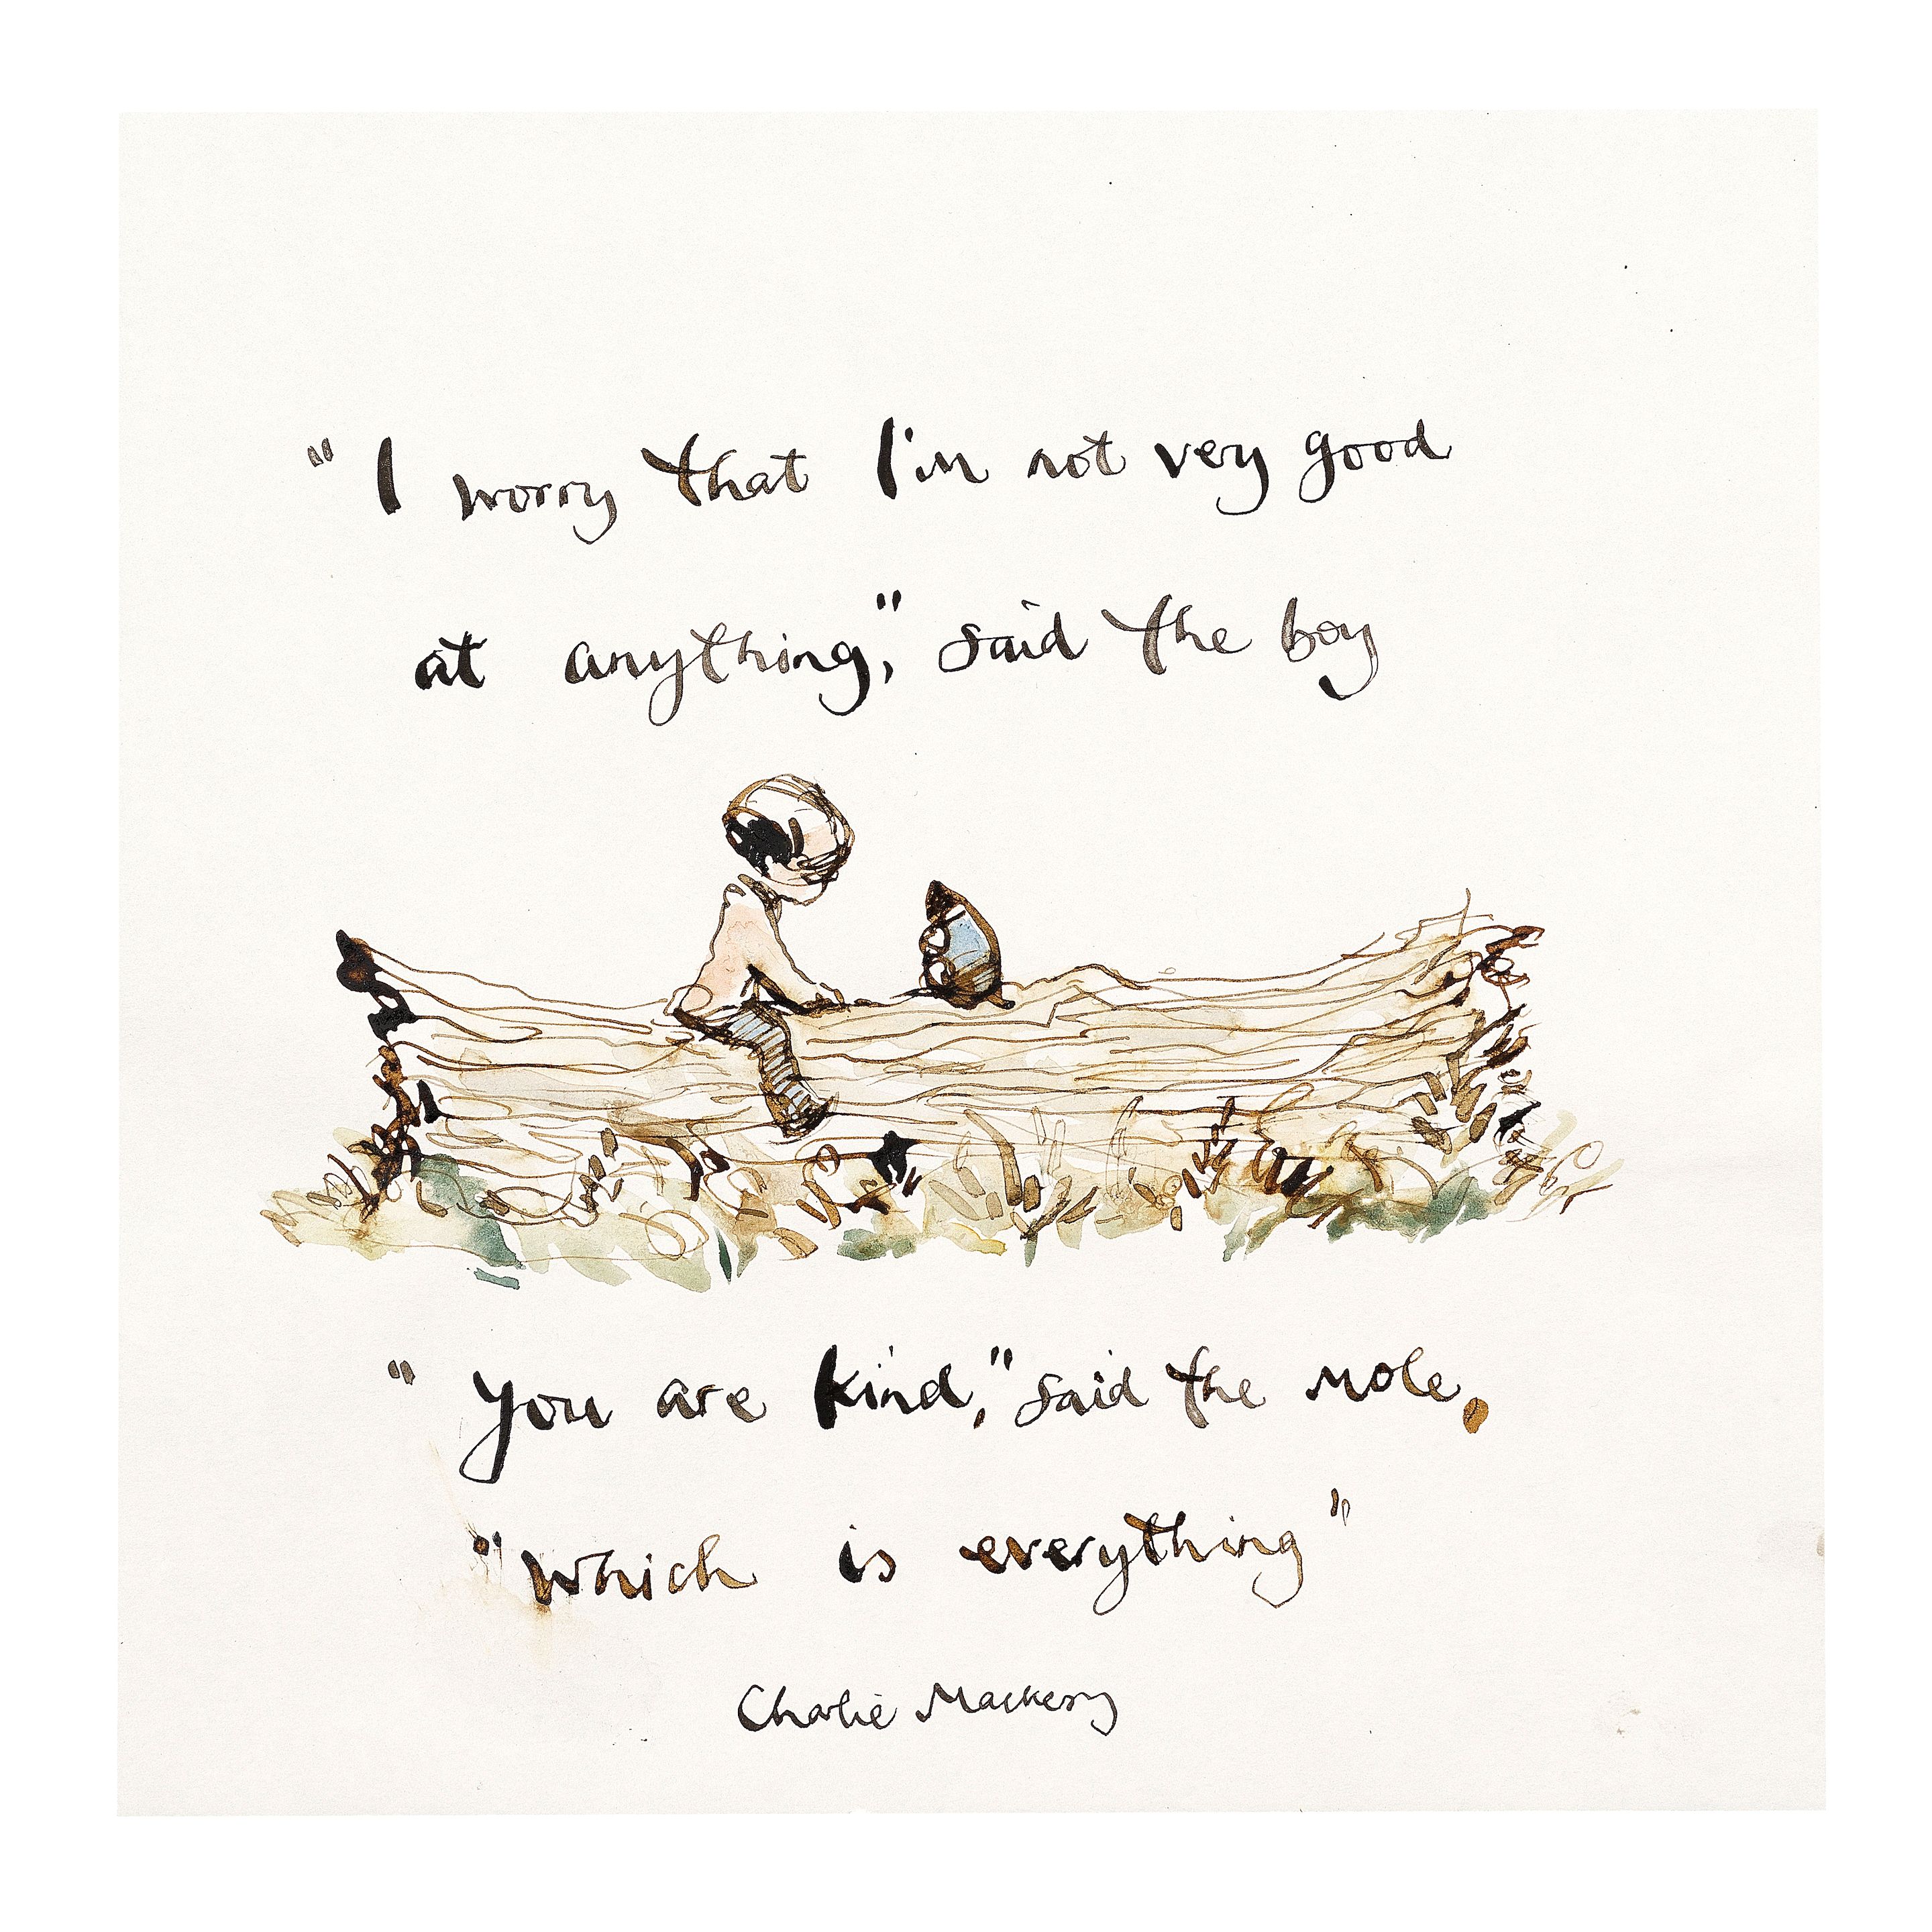 "I worry that I'm not very good
at anything," said the boy
"you are kind," said the mole,
"which is everything"
Charlie Mackesy